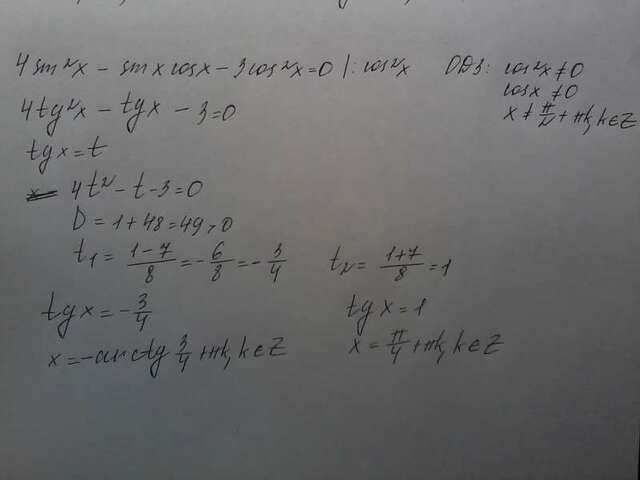 4 sin²x − sin x cos x − 3 cos²x = 0 |: cos²x ОДЗ: cos²x ≠ 0
cos x ≠ 0
x ≠ π/2 + πk, k ∈ Z
4tg²x − tg x − 3 = 0
tg x = t
4t² − t − 3 = 0
D = 1 + 48 = 49 > 0
t₁ = (1 − 7)/8 = −6/8 = −3/4 t₂ = (1 + 7)/8 = 1
tg x = −3/4 tg x = 1
x = −arctg 3/4 + πk, k ∈ Z x = π/4 + πk, k ∈ Z